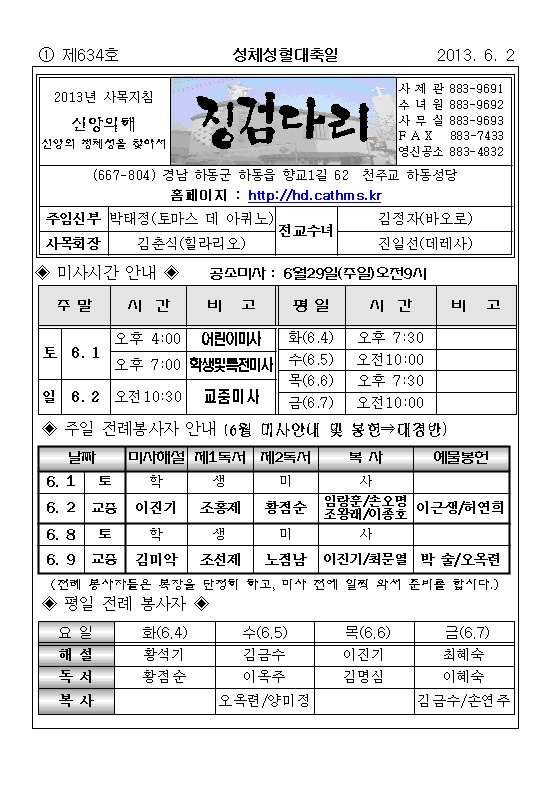 ① 제634호 성체성혈대축일 2013. 6. 2
2013년 사목지침
신앙의해
신앙의 정체성을 찾아서
징검다리
사 제 관 883-9691
수 녀 원 883-9692
사 무 실 883-9693
F A X 883-7433
영신공소 883-4832
(667-804) 경남 하동군 하동읍 향교1길 62 천주교 하동성당
홈페이지 : http://hd.cathms.kr
주임신부 박태정(토마스 데 아퀴노) 전교수녀 김정자(바오로)
사목회장 김춘식(힐라리오) 진일선(데레사)
◈ 미사시간 안내 ◈ 공소미사 : 6월29일(주일)오전9시
주 말 시 간 비 고 평 일 시 간 비 고
토 6. 1 오후 4:00 어린이미사 화(6.4) 오후 7:30
오후 7:00 학생및특전미사 수(6.5) 오전10:00
일 6. 2 오전10:30 교중미사 목(6.6) 오후 7:30
금(6.7) 오전10:00
◈ 주일 전례봉사자 안내 (6월 미사안내 및 봉헌⇒대경반)
날짜 미사해설 제1독서 제2독서 복 사 예물봉헌
6. 1 토 학 생 미 사
6. 2 교중 이진기 조홍제 황점순 임랑훈/손오명 조왕래/이종호 이근생/허연희
6. 8 토 학 생 미 사
6. 9 교중 김미악 조선제 노점남 이진기/최문열 박 술/오옥련
(전례 봉사자들은 복장을 단정히 하고, 미사 전에 일찍 와서 준비를 합시다.)
◈ 평일 전례 봉사자 ◈
요 일 화(6.4) 수(6.5) 목(6.6) 금(6.7)
해 설 황석기 김금수 이진기 최혜숙
독 서 황점순 이옥주 김명심 이혜숙
복 사 오옥련/양미정 김금수/손연주